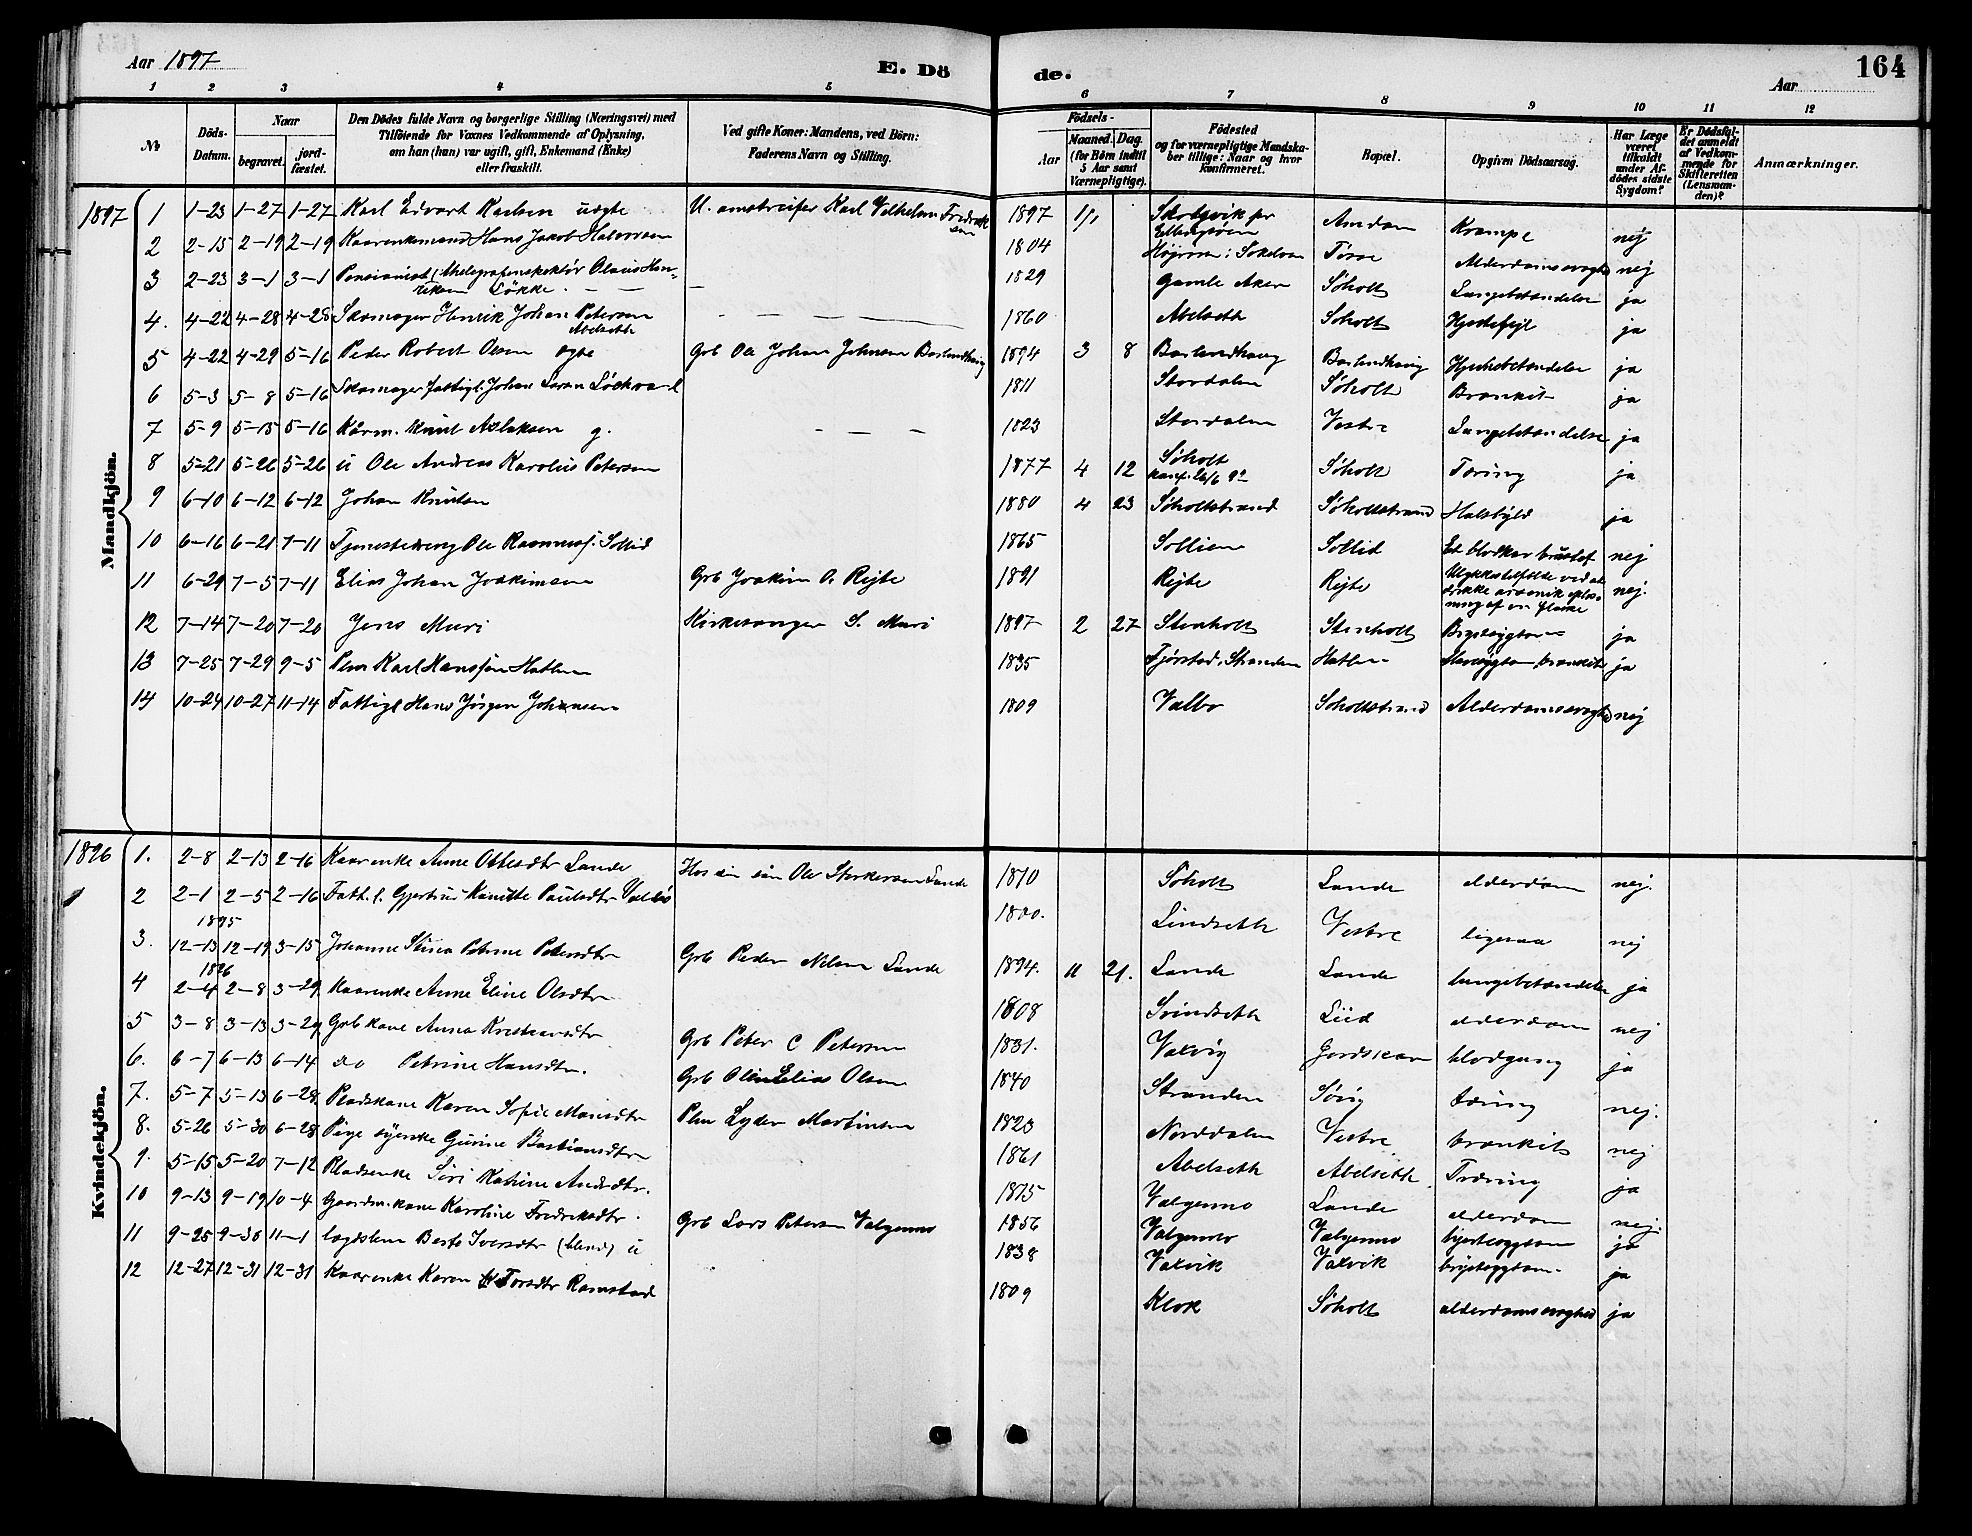 Aar 1897
E. Dö
de.
Aar
164
1 2 3 4 5 6 7 8 9 10 11 12
No
Döds-Datum.
Naar
begravet.
jord-fæstet.
Den Dödes fulde Navn og borgerlige Stilling (Næringsvei) med
Tilföiende for Voxnes Vedkommende af Oplysning,
om han (hun) var ugift, gift, Enkemand (Enke)
eller fraskilt.
Ved gifte Koner: Mandens, ved Börn:
Faderens Navn og Stilling.
Födsels-
Aar
Maaned. Dag.
(for Börn indtil
5 Aar samt
Værnepligtige).
Födested
og for værnepligtige Mandska-
ber tillige: Naar og hvor
konfirmeret.
Bopæl.
Opgiven Dödsaarsag.
Har Læge
været
tilkaldt
under Af-
dödes sidste
Sygdom?
Er Dödsfal-
det anmeldt
af Vedkom-
mende for
Skifteretten
(Lensman-
den)?
Anmærkninger.
Mandkjön.
1897 1 1-23 1-27 1-27 Karl Edvart Karlsen uægte U. omstreifer Karl Vilhelm Fredrik
sen 1897 1/1 Amdam Krampe nej
2 2-15 2-19 2-19 Kaarenkemand Hans Jakob Halvorsen 1804 Alderdomssvaghed nej
3 2-23 3-1 3-1 Pensionist Olaus Hen-
riksen Løkke 1829 Gamle Aker Søholt Lungebetændelse ja
4. 4-22 4-28 4-28 Skomager Henrik Johan Petersen
Abelseth 1860 Abelseth Søholt Hjertefejl ja
5 4-22 4-29 5-16 Peder Robert Olsen ægte Grb Ole Johan Johnsen 1894 3 8 ja
6 5-3 5-8 5-16 Skomager fattigl. Johan 1811 Stordalen Søholt Bronkit ja
7 5-9 5-15 5-16 Kårm. Knut Aslaksen g. 1823 Stordalen Vestre Lungebetændelse ja
8 5-21 5-26 5-26 u Ole Andreas Karolius Petersen 1877 4 12 Søholt Søholt Tæring ja
9 6-10 6-12 6-12 Johan Knutsen 1880 4 23 Søholtstrand Søholtstrand Halsbyld ja
10 6-16 6-21 7-11 Tjenestedreng Ole Rasmusf. Sollid 1865 Sollien Sollid Et blodkar bristet nej
11 6-29 7-5 7-11 Elias Johan Joakimsen Grb Joakim O. Rejte 1891 Rejte Rejte Ulykkestilfælde ved at
drikke arsenik opløs-
ning af en flaske nej.
12 7-14 7-20 7-20 Jens Muri Kirkesanger S. Muri 1897 2 27 Stenholt Stenholt Brystsygdom ja
13 7-25 7-29 9-5 Plm Karl Hanssen Hatlen 1835 Fjørstad, Stranden Hatlen bronkit ja
14 10-24 10-27 11-14 Fattigl Hans Jørgen Johansen 1809 Valbo Søholtstrand Alderdomssvaghed nej
Kvindekjön.
1896 1. 2-8 2-13 2-16 Kaarenke Anne Ottesdtr Lande Hos sin søn Ole Sterkersen Lande 1810 Søholt Lande alderdom nej.
2 2-1 2-5 2-16 Fath. l. Paulsdtr 1800. Lindseth Vestre ligesaa nej
1895
3. 12-13 12-19 3-15 Johanne Stina Petrine Petersdtr Grb Peder Nilsen Lande 1894. 11 21. Lande Lande lungebetændelse ja
1896
4 2-4 2-8 3-29 Kaarenke Anne Eline Olsdtr 1808 Svindseth Liid alderdom nej
5 3-8 3-13 3-29 Grb kone Anna Grb Peter C Petersen 1831. Valvig blodgang ja
6. 6-7 6-13 6-14 do Petrine Hansdtr. Grb Elias Olsen 1840 Stranden Søvig tæring nej.
7. 5-7 5-13 6-28. Pladskone Karen Sofie Mansdtr Plm Lyder Martinsen 1823 Norddalen Vestre bronkit nej
8. 5-26 5-30 6-28 Pige syerske Gurine Bastiansdtr 1861 Abelseth Abelseth Træring ja
9. 5-15 5-20 7-12 Pladsenke Siri Katrine Andrdtr. 1815 Valgermo Lande alderdom nej.
10 9-13 9-19 10-4 Gaardm.kone Karoline Fredriksdtr. Grb Lars Petersen Valgermo 1856 Valgermo Valgermo hjertesygdom ja
11 9-25 9-30 11-1 lægdslem Berte Iversdtr (blind) u 1838 Valvik Valvik brystsygdom ja
12 12-27 12-31 12-31 Kaarenke Karen Torsdtr Ramstad 1809 Klok Søholt alderdomssvaghed ja